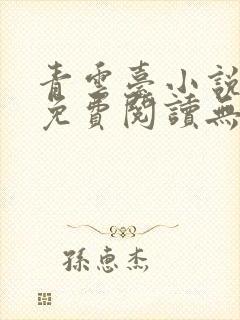 青雲臺小說
免費閱讀無
孫惠杰